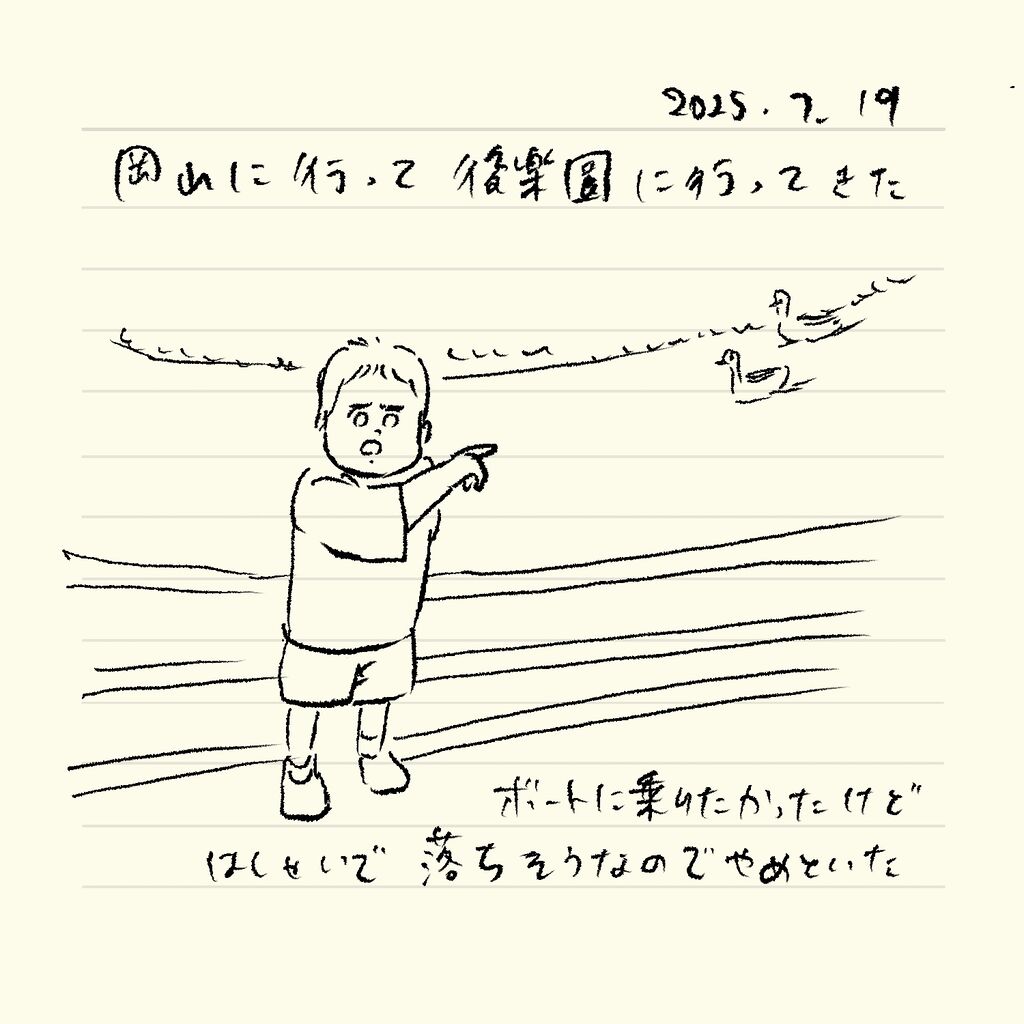 2025.7.19
岡山に行って後楽園に行ってきた
ボートに乗りたかったけど
はしせいで落ちそうなのでやめといた